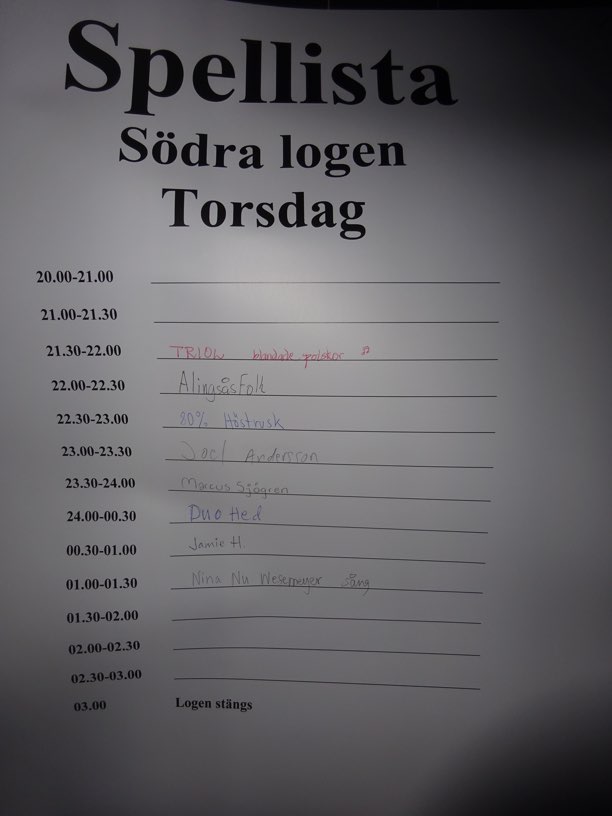 Spellista
Södra logen
Torsdag
20.00-21.00
21.00-21.30
21.30-22.00 TRION blandade polskor
22.00-22.30 AlingsåsFolk
22.30-23.00 80% Höstrusk
23.00-23.30 Joel Andersson
23.30-24.00 Marcus Sjögren
24.00-00.30 Duo Hed
00.30-01.00 Jamie H.
01.00-01.30 Nina Nu Wesemeyer sång
01.30-02.00
02.00-02.30
02.30-03.00
03.00 Logen stängs